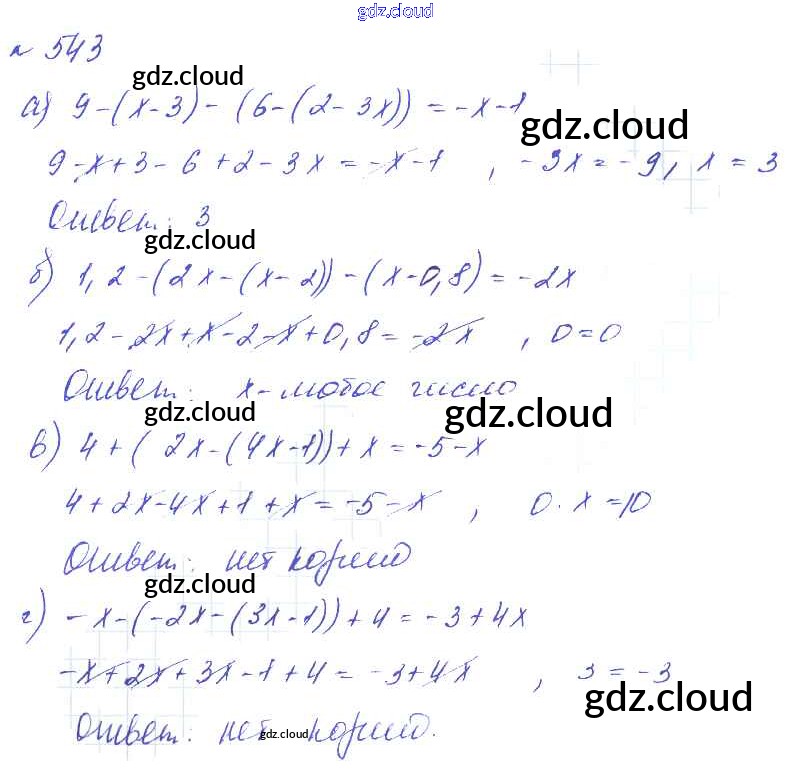 gdz.cloud
№ 543
gdz.cloud
а) 9-(x-3)-(6-(2-3x)) = -x-1
gdz.cloud
9-x+3-6+2-3x = -x-1 , -3x = -9, x = 3
Ответ: 3
gdz.cloud
б) 1,2-(2x-(x-2))-(x-0,8) = -2x
1,2-2x+x-2-x+0,8 = -2x , 0=0
Ответ: x-любое число
gdz.cloud gdz.cloud
в) 4+(2x-(4x-1))+x = -5-x
4+2x-4x+1+x = -5-x , 0·x=10
Ответ: нет корней
gdz.cloud
г) -x-(-2x-(3x-1))+4 = -3+4x
-x+2x+3x-1+4 = -3+4x , 3 = -3
gdz.cloud
Ответ: нет корней.
gdz.cloud